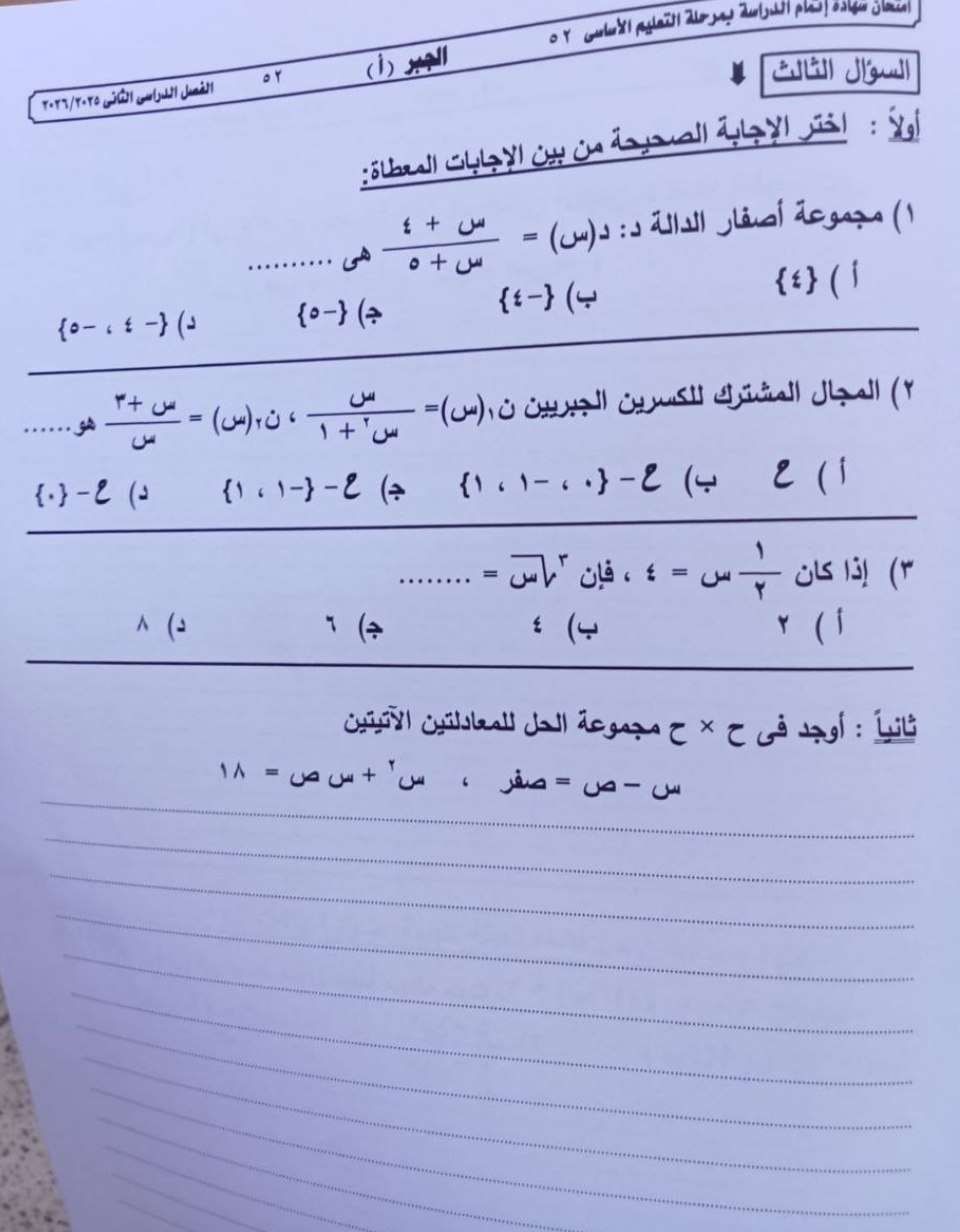 امتحان شهادة إتمام الدراسة بمرحلة التعليم الأساسى ٥٢ الجبر (أ) ٥٢ الفصل الدراسى الثانى ٢٠٢٦/٢٠٢٥
السؤال الثالث
أولاً : اختر الإجابة الصحيحة من بين الإجابات المعطاة:
١) مجموعة أصفار الدالة د: د(س) = (س + ٤)/(س + ٥) هى ..........
أ ) {٤} ب) {-٤} ج) {-٥} د) {- ٤ ، -٥}
٢) المجال المشترك للكسرين الجبريين ن₁(س)= س/(س² + ١) ، ن₂(س) = (س +٣)/س هو......
أ ) ح ب) ح - {٠، -١ ، ١} ج) ح - {-١ ، ١} د) ح - {٠}
٣) إذا كان ١/٢ س = ٤ ، فإن ∛س = ........
أ ) ٢ ب) ٤ ج) ٦ د) ٨
ثانياً : أوجد فى ح × ح مجموعة الحل للمعادلتين الآتيتين
س - ص = صفر ، س² + س ص = ١٨